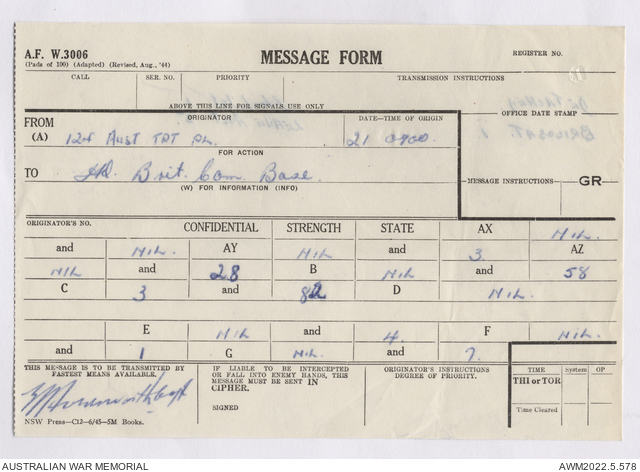 A.F. W.3006
(Pads of 100) (Adapted) (Revised, Aug., '44)
MESSAGE FORM
REGISTER NO.
CALL SER. NO. PRIORITY TRANSMISSION INSTRUCTIONS
ABOVE THIS LINE FOR SIGNALS USE ONLY
OFFICE DATE STAMP
FROM ORIGINATOR DATE–TIME OF ORIGIN
(A) 124 Aust TPT PL. 21 0900
FOR ACTION
TO HQ. Brit. Com Base.
(W) FOR INFORMATION (INFO)
MESSAGE INSTRUCTIONS GR
ORIGINATOR'S NO. CONFIDENTIAL STRENGTH STATE AX NIL
and NIL AY NIL and 3 AZ
NIL and 28 B NIL and 58
C 3 and 82 D NIL
E NIL and 4 F NIL
and 1 G NIL and 7.
THIS MESSAGE IS TO BE TRANSMITTED BY FASTEST MEANS AVAILABLE.
IF LIABLE TO BE INTERCEPTED OR FALL INTO ENEMY HANDS, THIS MESSAGE MUST BE SENT IN CIPHER.
SIGNED
ORIGINATOR'S INSTRUCTIONS DEGREE OF PRIORITY.
TIME System OP
THI or TOR
Time Cleared
NSW Press—C12—6/45—5M Books.
AUSTRALIAN WAR MEMORIAL AWM2022.5.578